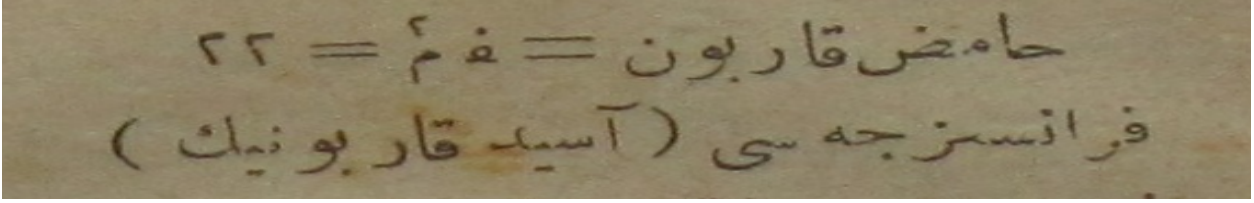 حامض قاربون = ف م٢ = ٢٢
فرانسزجه سی ( آسید قاربونیك )